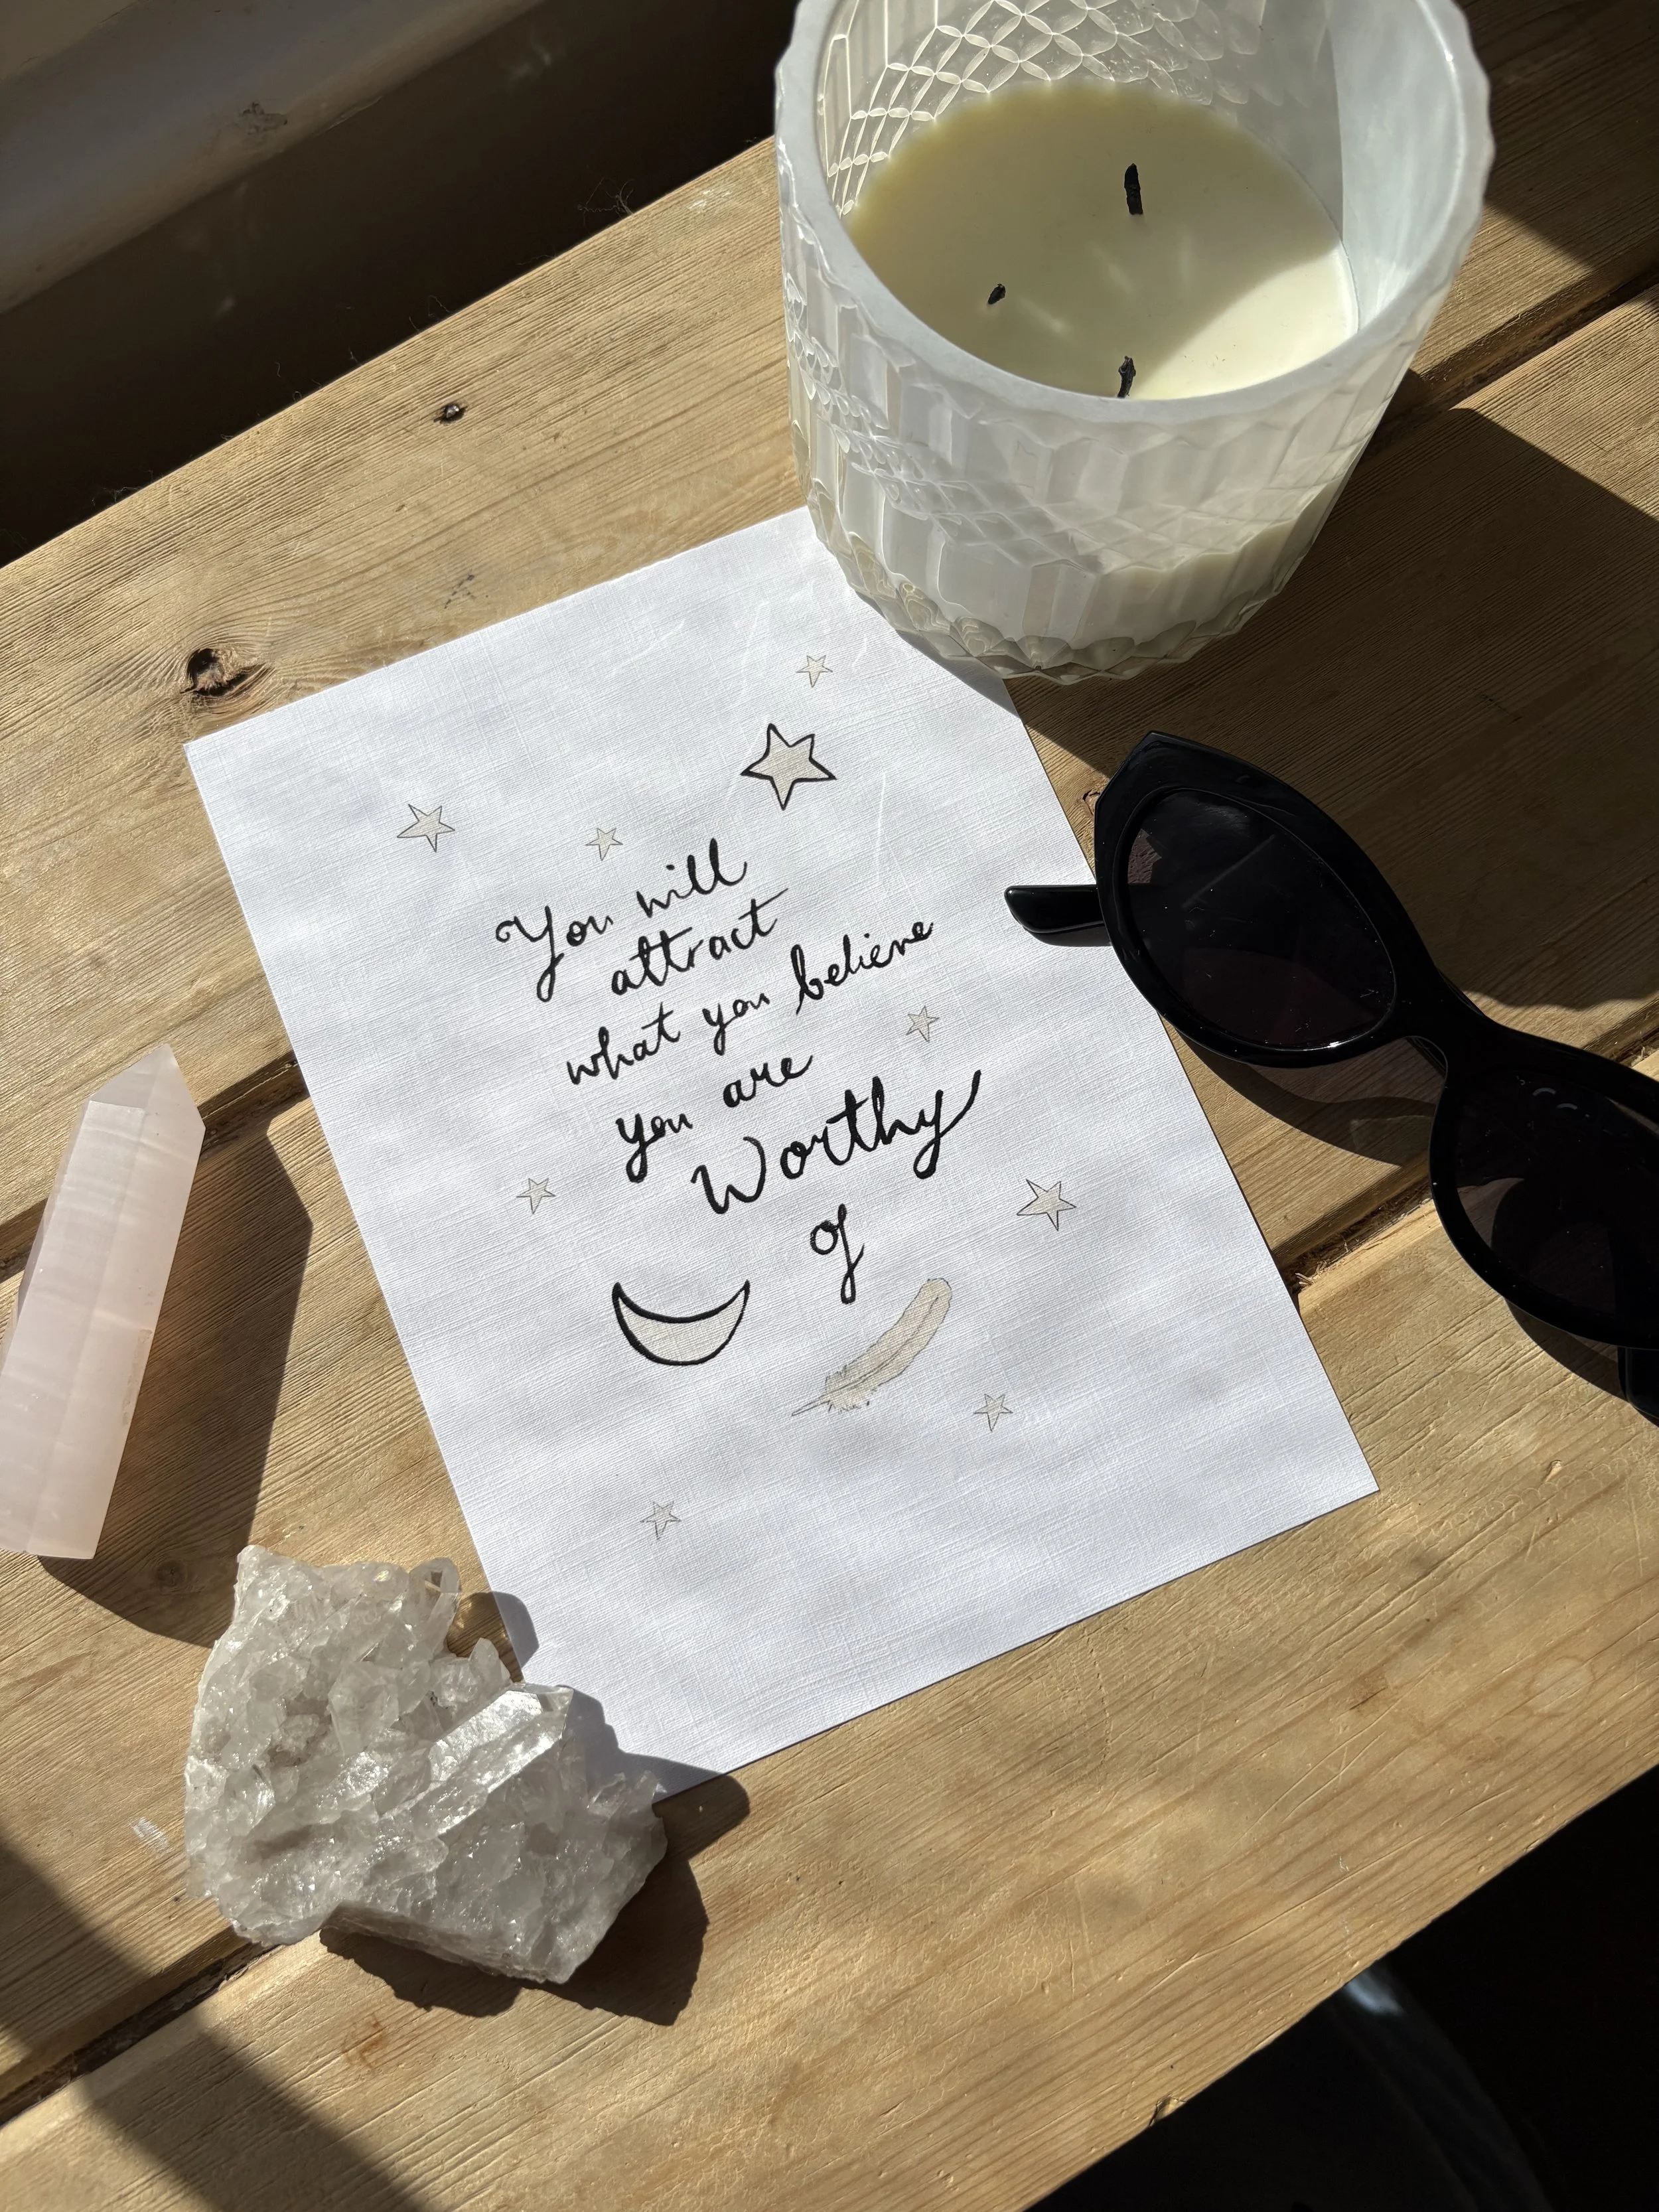 You will
attract
what you believe
you are
Worthy
of